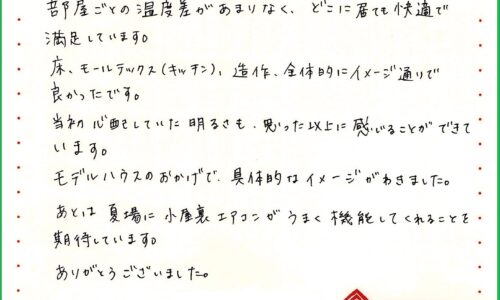 部屋ごとの温度差があまりなく、どこに居ても快適で
満足しています。
床、モールテックス(キッチン)、造作、全体的にイメージ通りで
良かったです。
当初心配していた明るさも、思った以上に感じることができて
います。
モデルハウスのおかげで、具体的なイメージがわきました。
あとは夏場に小屋裏エアコンがうまく機能してくれることを
期待しています。
ありがとうございました。